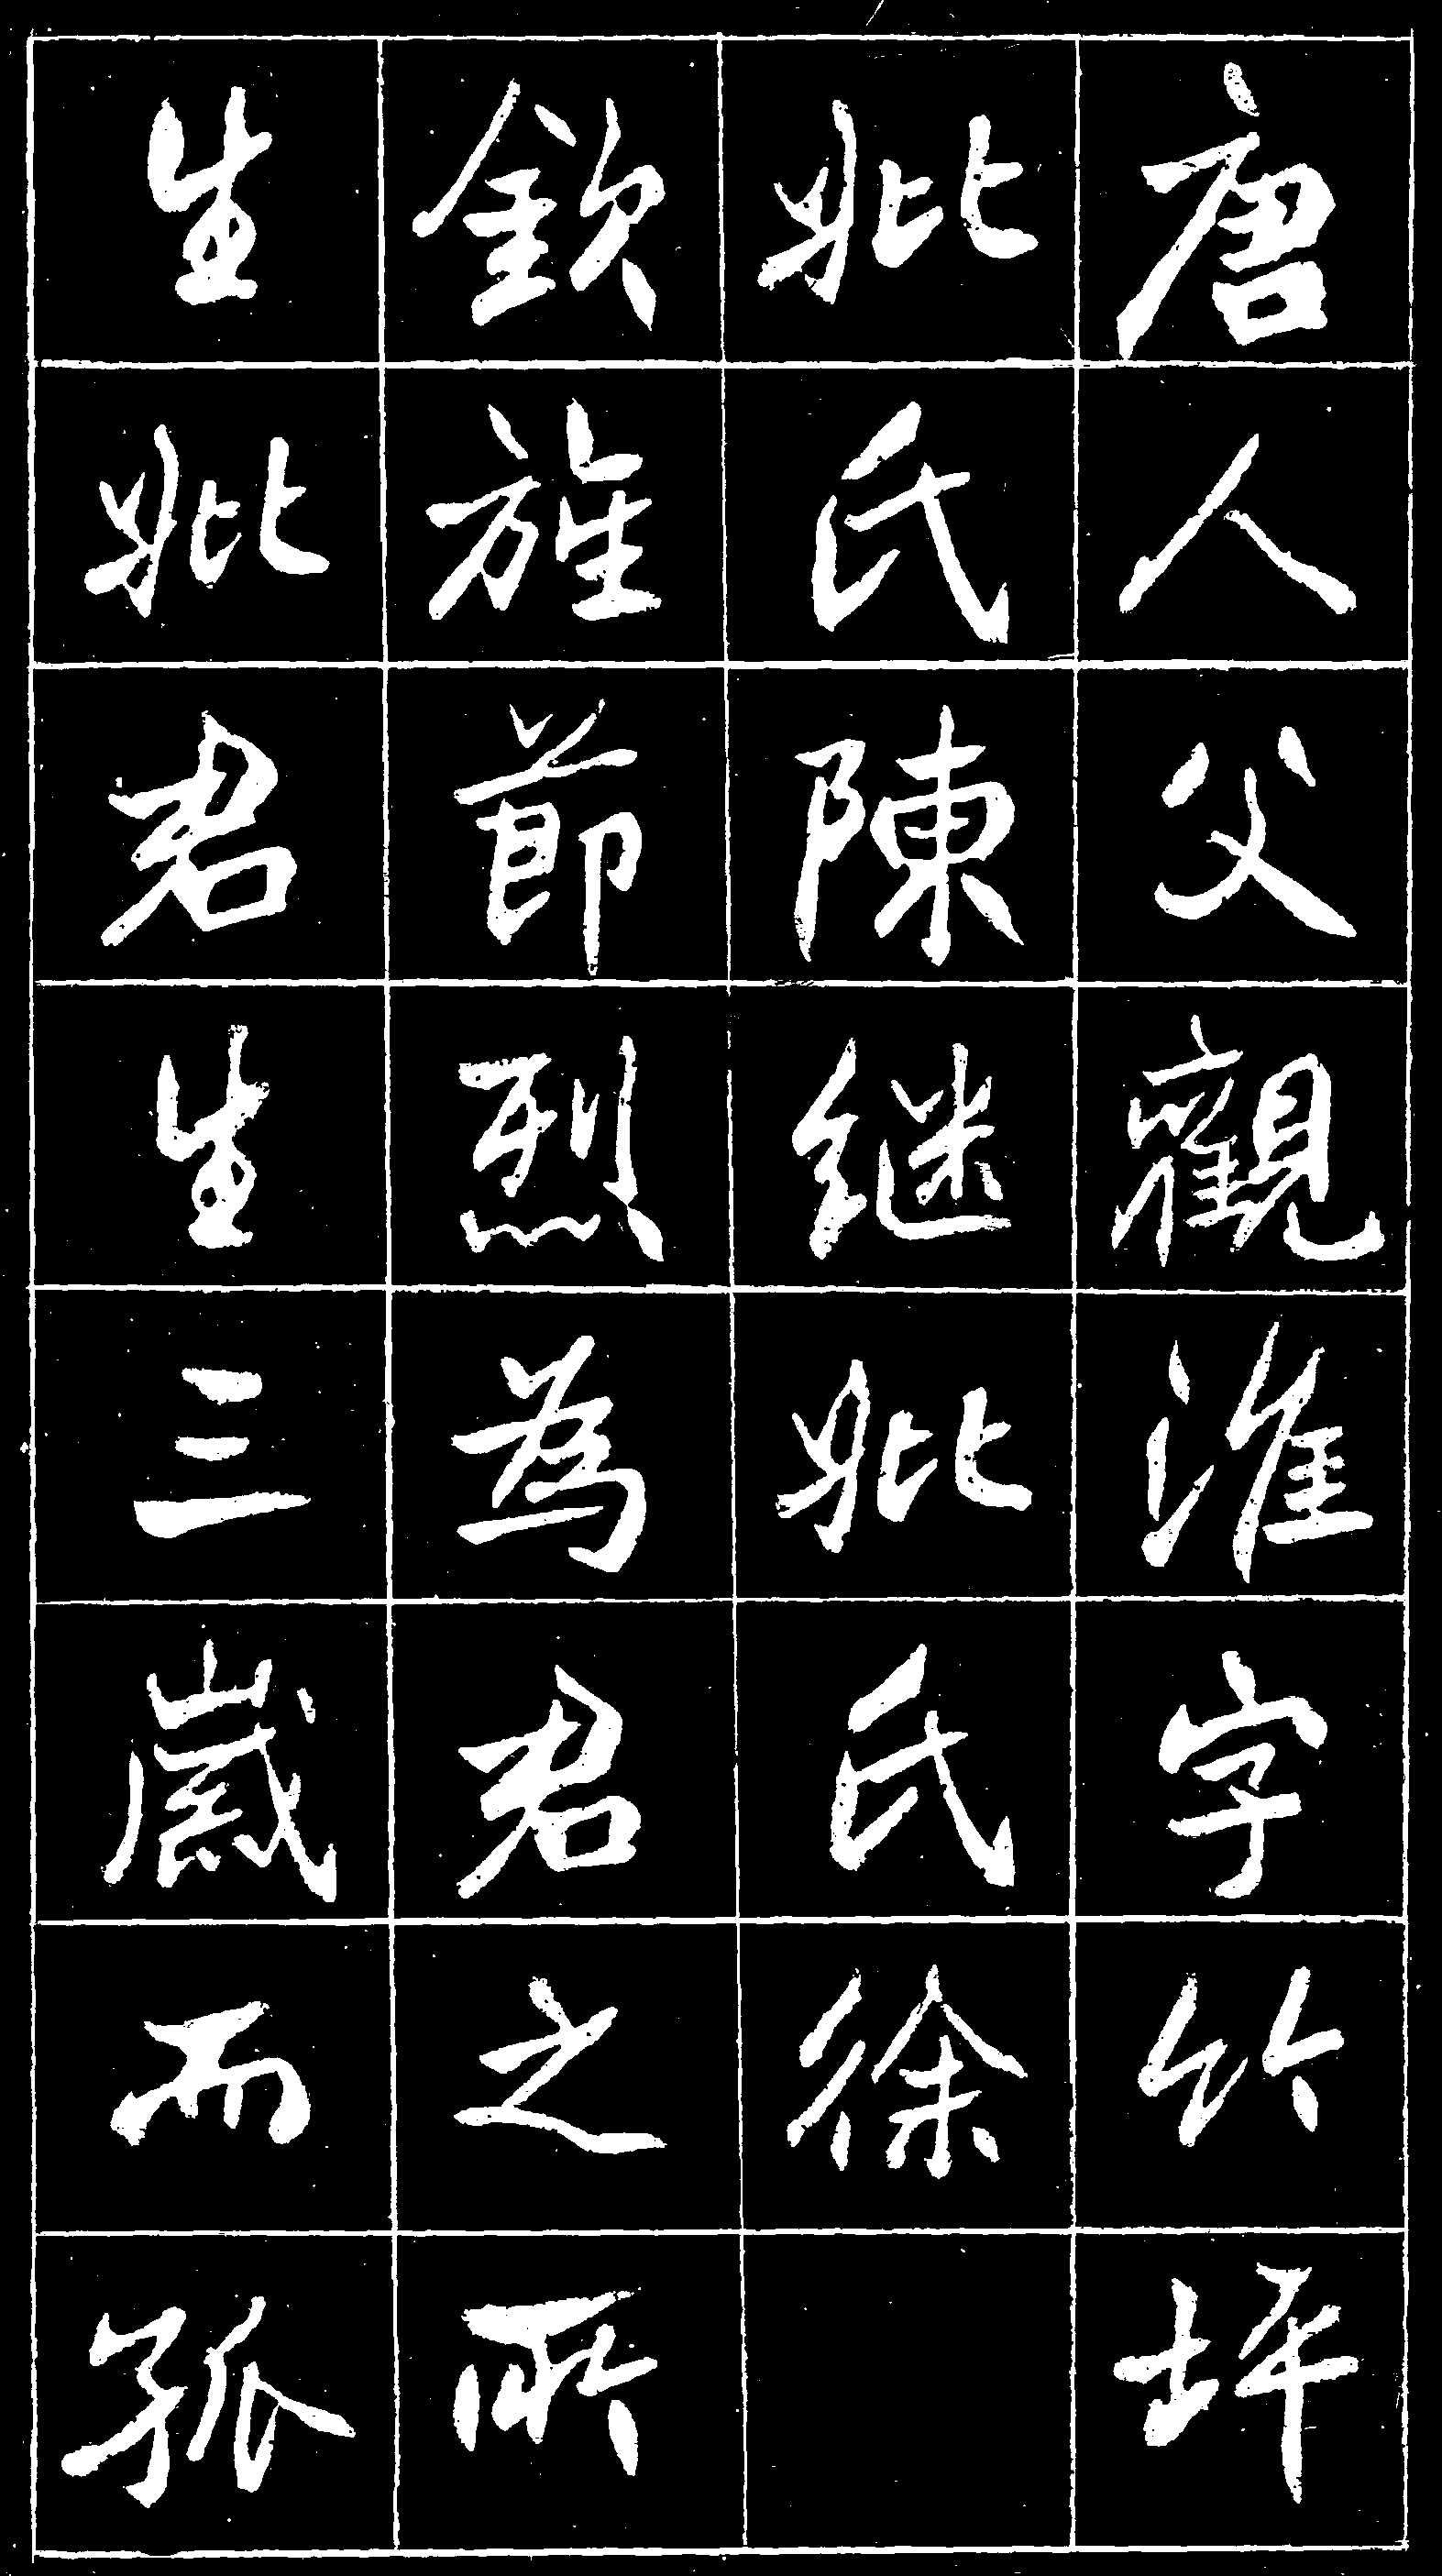 唐人父觀淮字竹坪
妣氏陳继妣氏徐
欽旌節烈為君之所
生妣君生三歲而孤